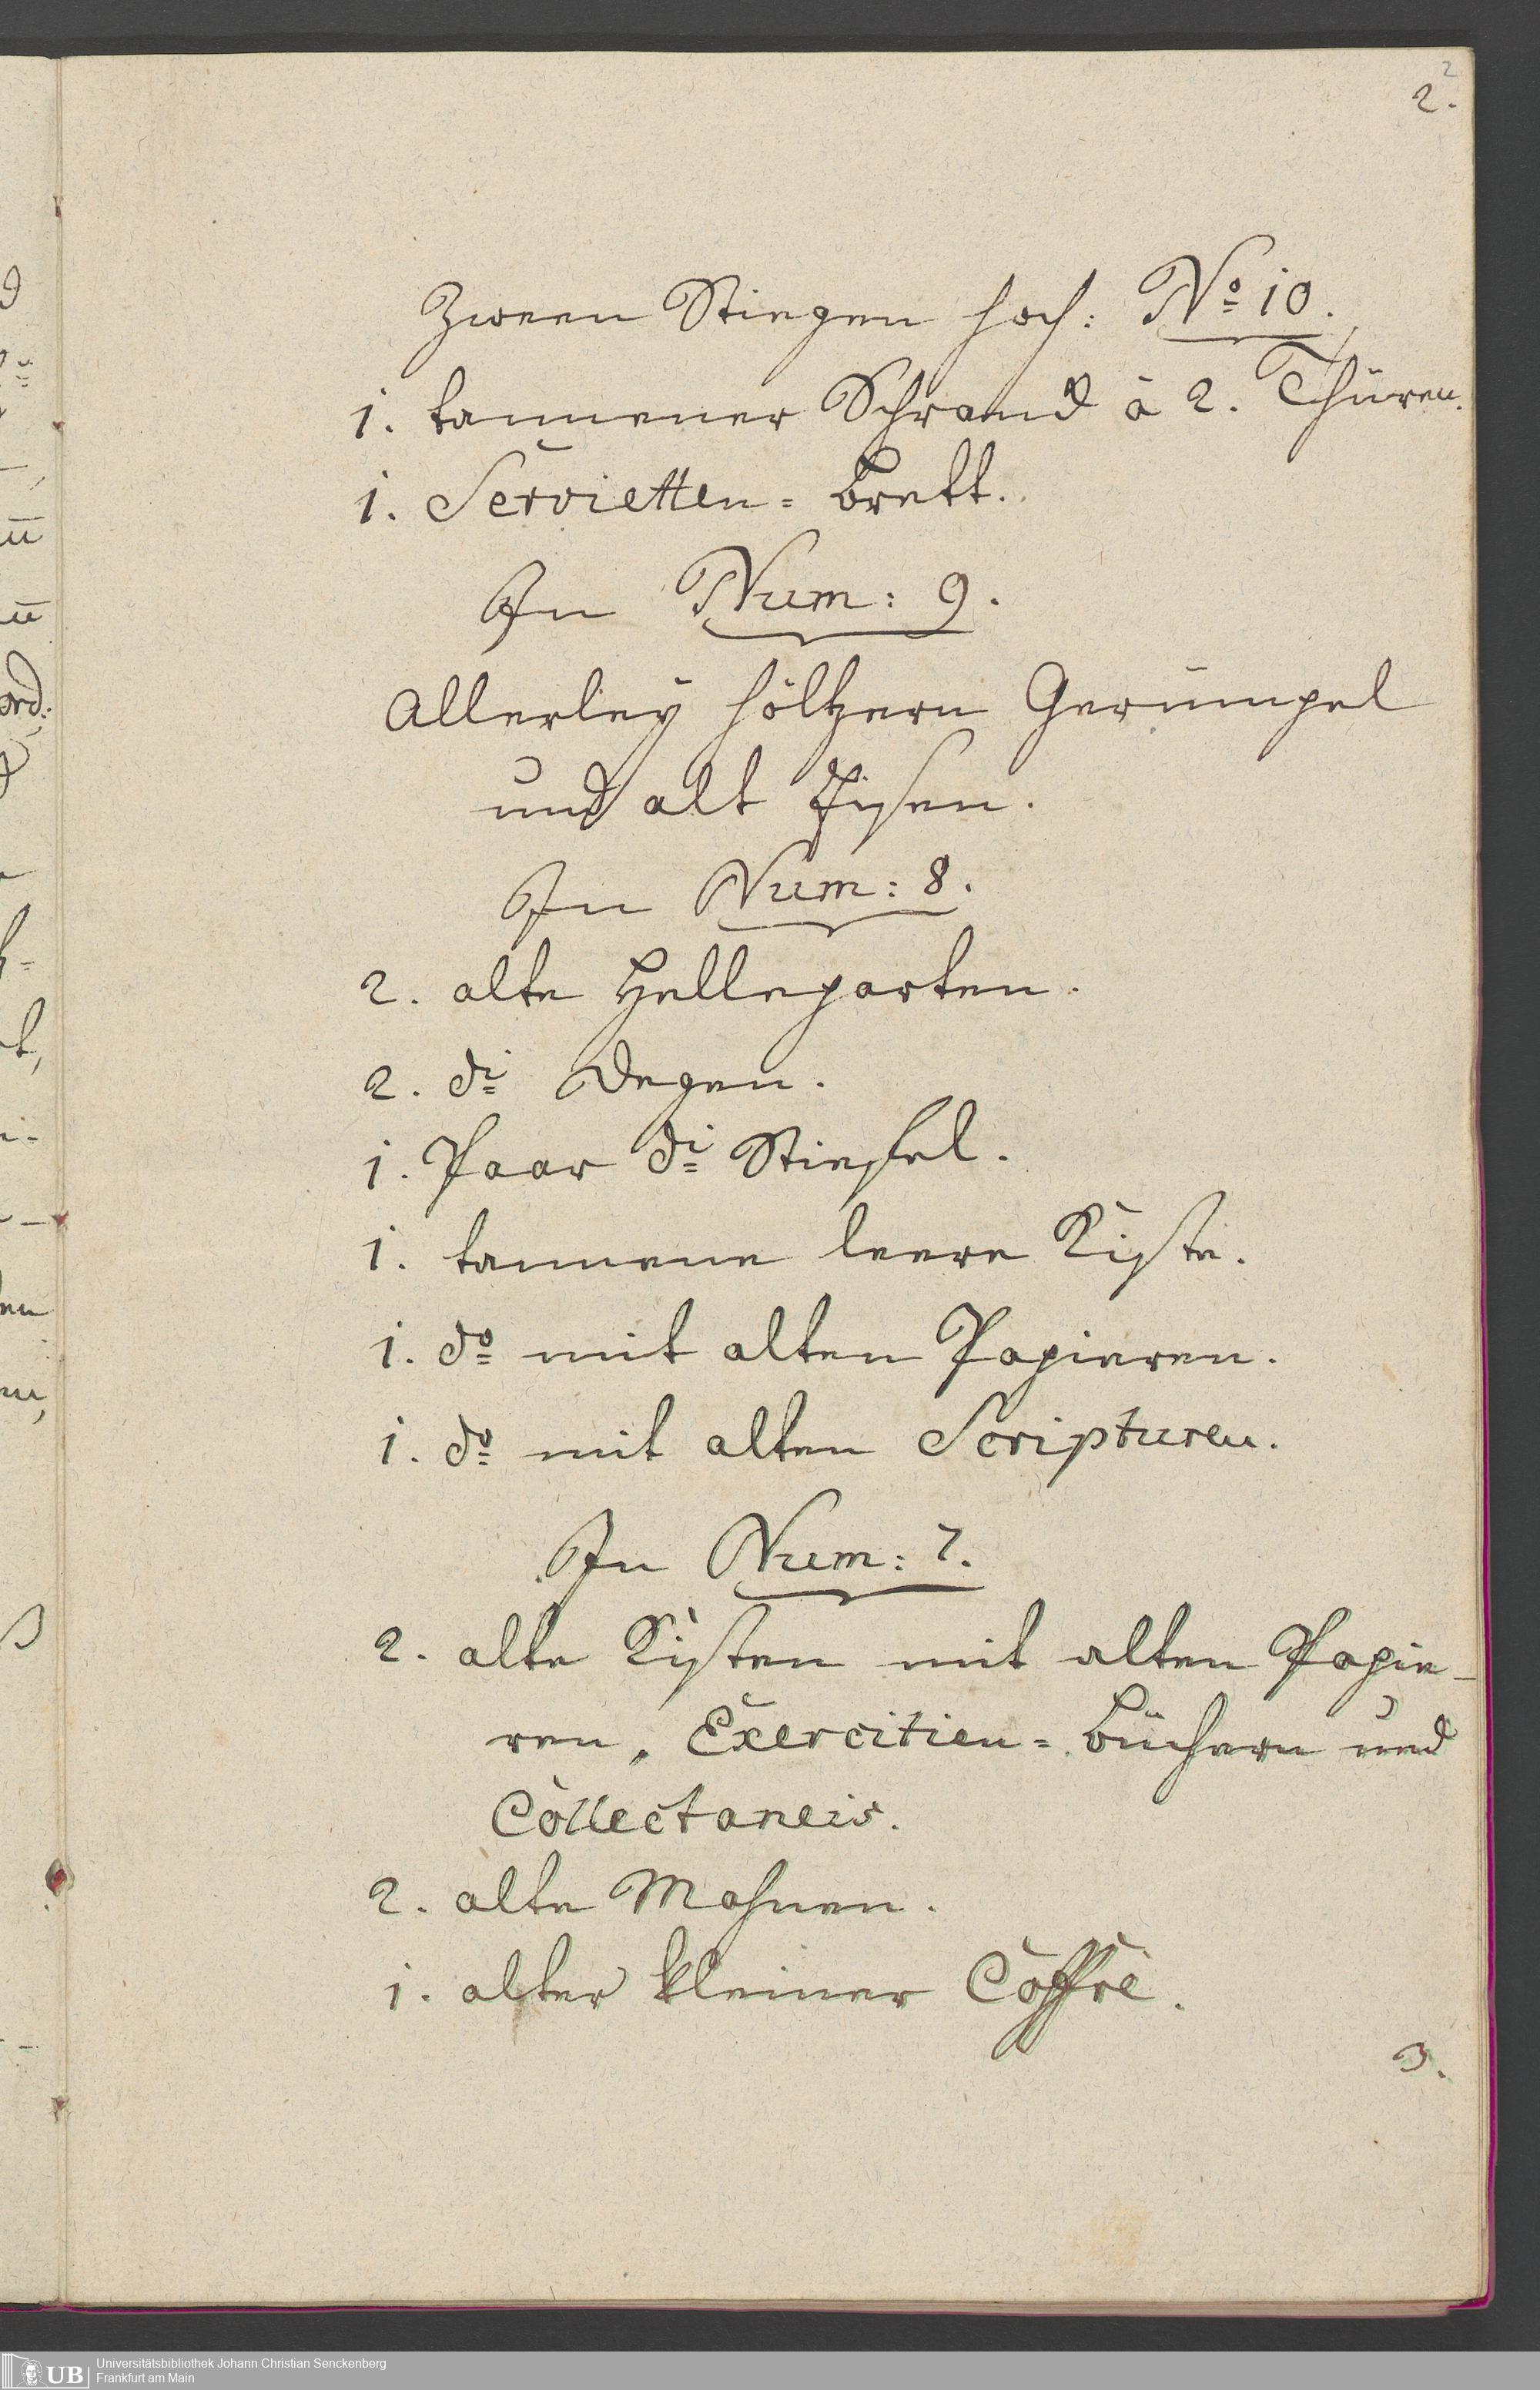 2
2.
Zween Stiegen hoch: No. 10.
1. tannener Schrand à 2. Thüren.
1. Servietten= brett.
In Num: 9.
Allerley höltzern Gerümpel
und alt Eisen.
In Num: 8.
2. alte Helleparten.
2. di Degen.
1. Paar di Stiefel.
1. tannene leere Kiste.
1. do mit alten Papieren.
1. do mit alten Scripturen.
In Num: 7.
2. alte Kisten mit alten Papie-
ren, Exercitien= büchern und
Collectaneis.
2. alte Mahnen.
1. alter kleiner Coffre.
3.
UB
Universitätsbibliothek Johann Christian Senckenberg
Frankfurt am Main